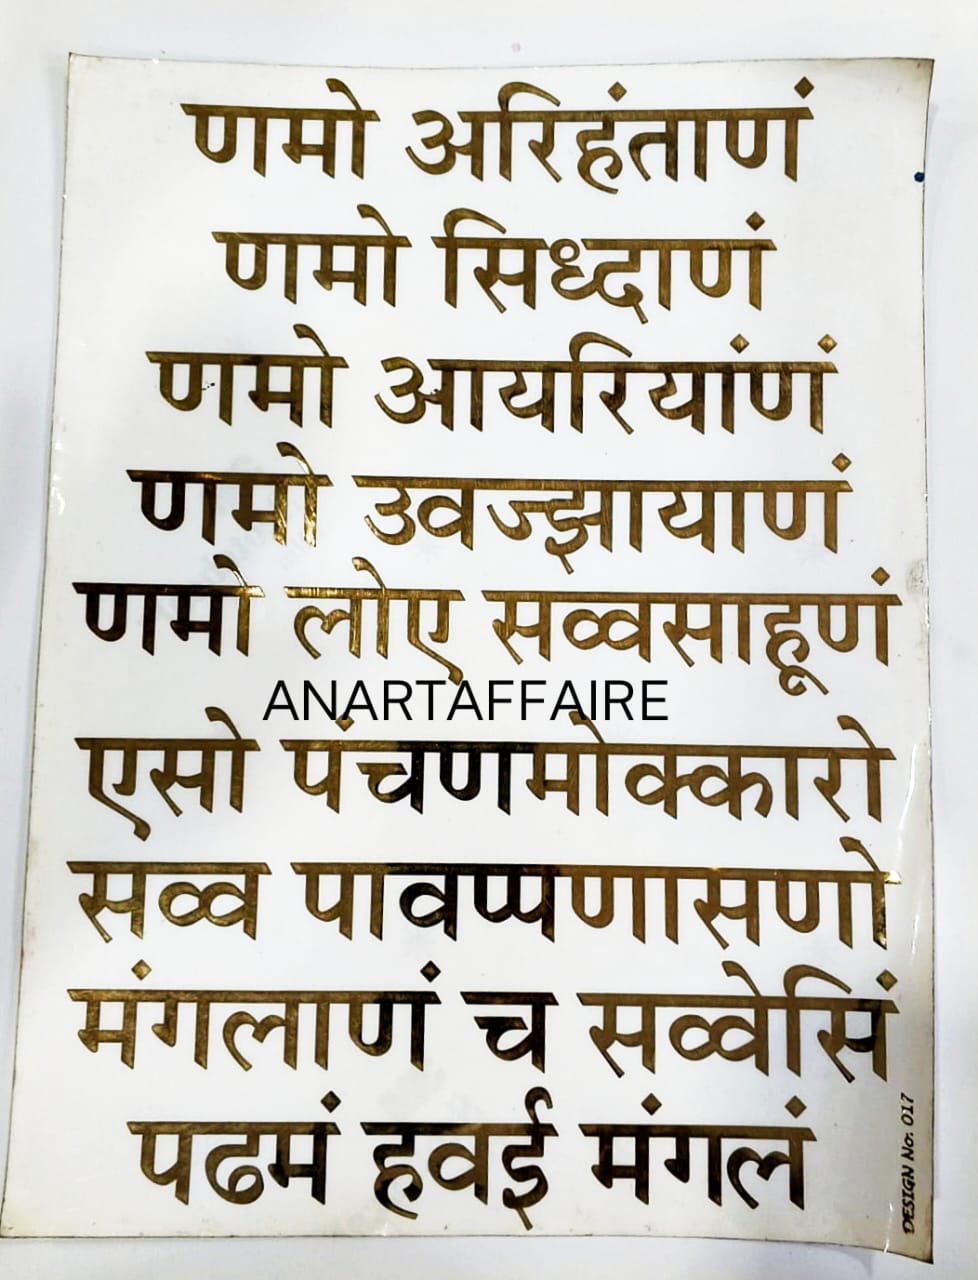 णमो अरिहंताणं
णमो सिध्दाणं
णमो आयरियांणं
णमो उवज्झायाणं
णमो लोए सव्वसाहूणं
ANARTAFFAIRE
एसो पंचणमोक्कारो
सव्व पावप्पणासणो
मंगलाणं च सव्वेसिं
पढमं हवई मंगलं
DESIGN No. 017